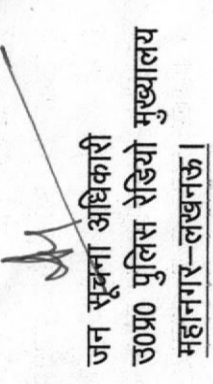 जन सूचना अधिकारी
उ0प्र0 पुलिस रेडियो मुख्यालय
महानगर–लखनऊ।